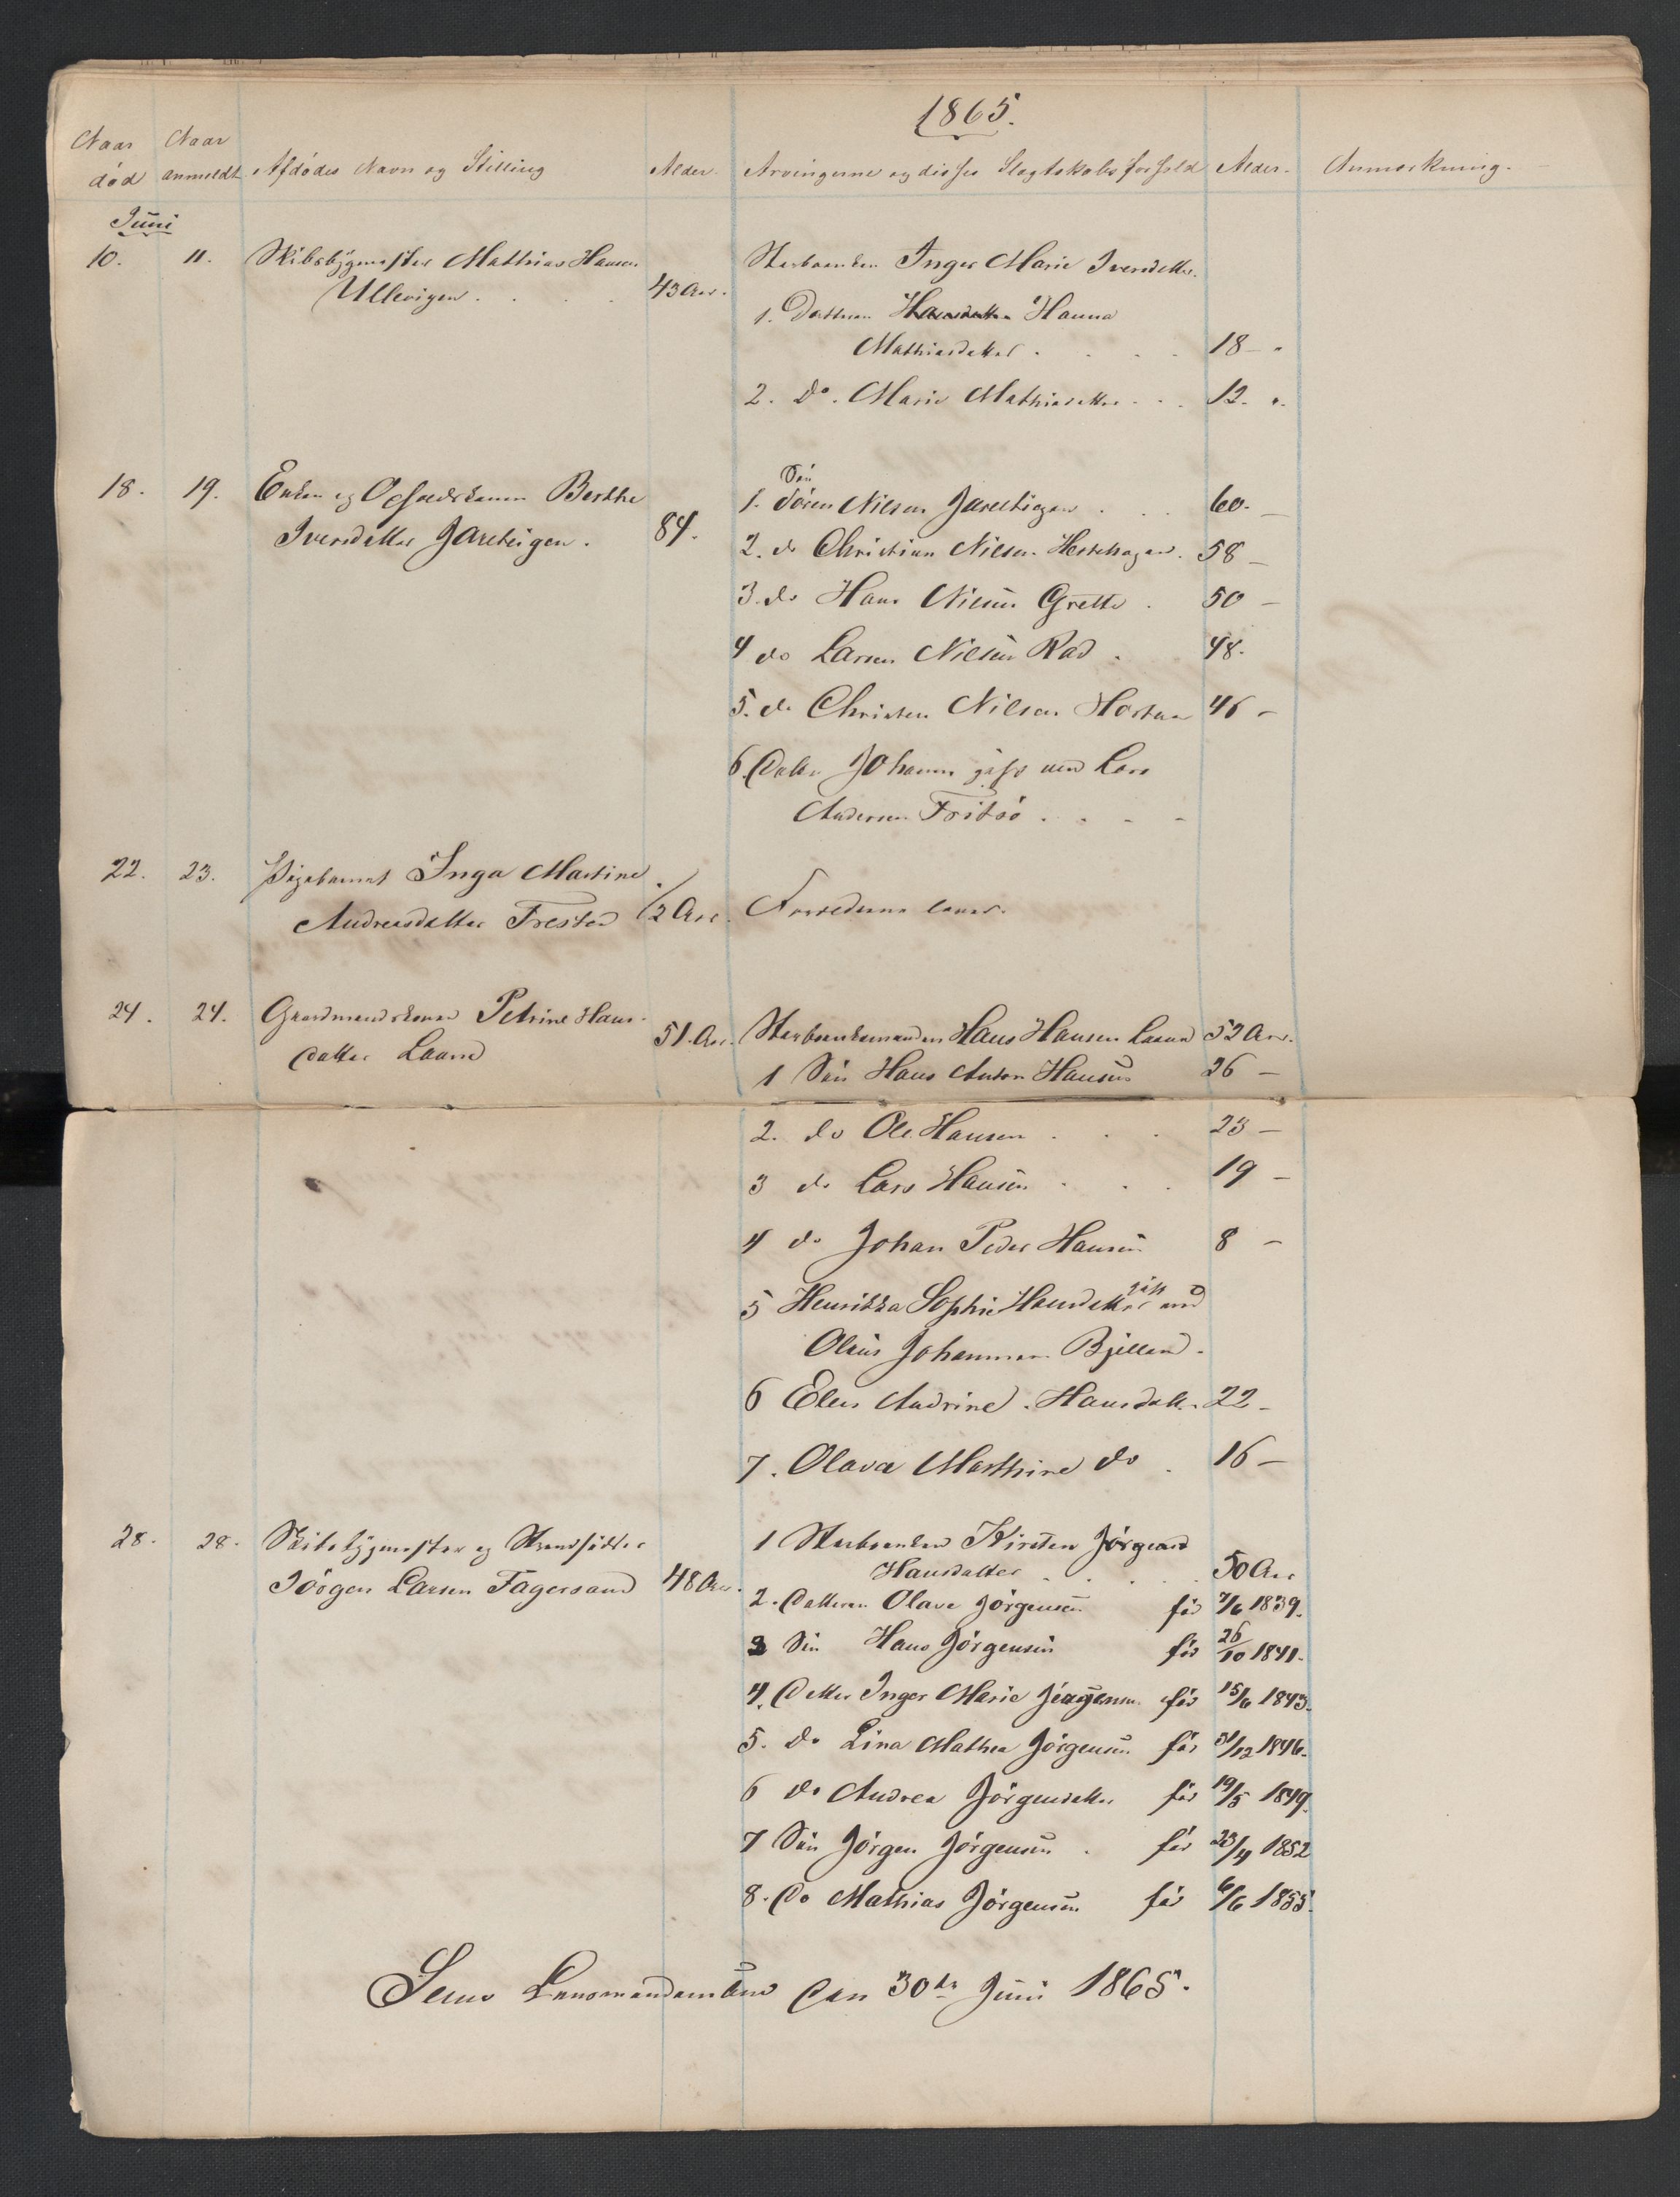 1865.
Naar død Naar anmeldt Afdødes Navn og Stilling Alder. Arvingerne og disses Slegtskabsforhold Alder. Anmærkning.
Juni
10. 11. Skibsbygmester Mathias Hansen Enken Inger Marie Iversdatter.
Ullevigen . . . 43 Aar.
1. Datteren Hansdatter Hanna
Mathiasdatter . . . . 18 - "
2. Do. Marie Mathiasdatter . . . 12. ".
Sön
18. 19. Enken og Berthe 1. Sören Nilsen Jareteigen . . . 60. -
Iversdatter Jareteigen. 84. 2. do Christian Nilsen Hestehagen. 58 -
3. do Hans Nilsen Grette . 50 -
4 do Larsen Nilsen Rad . 48.
5. do Christen Nilsen Horten 46 -
6. Datter Johanne gift med Lars
Andersen Fritsö . . - -
22. 23. Pigebarnet Inga Martine
Andreasdatter Fresten 1/2 Aar. Forældrene lever.
24. 24. Gaardmandskone Petrine Hans-
datter Laane 51. Aar. Hans Hansen Laane 52 Aar.
1 Sön Hans Anton Hansen 26 -
2. do Ole Hansen . . . 23 -
3 do Lars Hansen . . . 19 -
4 do Johan Peder Hansen 8 -
5 Henrikka Sophie Hansdatter gift med
Olaus Johannesen Bjelland.
6 Elen Andrine Hansdatt. 22 -
7. Olava Marthine do . 16 -
28. 28. Skibsbygmester og 1 Kirsten Jörgens
Hansdatter . . . . 50 Aar
Jörgen Larsen Fagersand 48 Aar.
2. Datteren Olava Jörgensen föd 7/6 1839.
3 Sön Hans Jörgensen föd 26/10 1841.
4. Datter Inger Marie Jörgensen föd 15/6 1843.
5. do Lina Mathea Jörgensen föd 31/12 1846.
6 do Andrea Jörgensdatter föd 19/5 1849.
7 Sön Jörgen Jörgensen . föd 23/4 1852
8. Do Mathias Jörgensen föd 6/6 1855.
Sems Lensmandsembede den 30te Juni 1865.